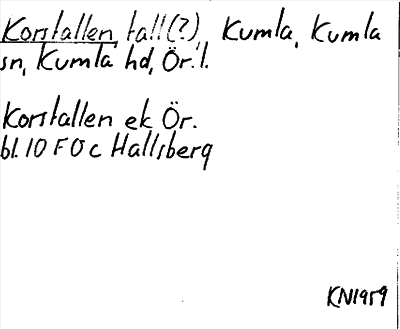 Korstallen, tall(?), Kumla, Kumla
sn, Kumla hd, Ör. l.
Korstallen ek Ör.
bl. 10 F 0 c Hallsberg
KN1959